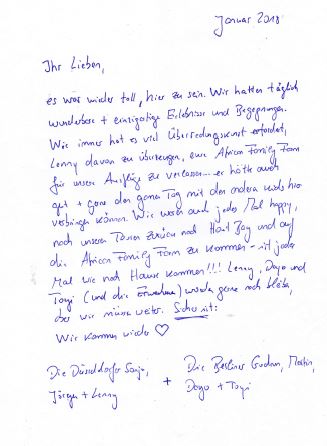 Januar 2018
Ihr Lieben,
es war wieder toll, hier zu sein. Wir hatten täglich
wunderbare + einzigartige Erlebnisse und Begegnungen.
Wie immer hat es viel Überredungskunst erfordert,
Lenny davon zu überzeugen, eure African Family Farm
für unsere Ausflüge zu verlassen... er hätte auch
gut + gerne den ganzen Tag mit den anderen Kids hier
verbringen können. Wir waren auch jedes Mal happy,
nach unseren Touren zurück nach Hout Bay und auf
die African Family Farm zu kommen - ist jedes
Mal wie nach Hause kommen!!! Lenny, Dayo und
Toyi (und die Erwachsenen) würden gerne noch bleiben,
aber wir müssen weiter. Sicher ist:
Wir kommen wieder ♡
Die Düsseldorfer Sonja,
Jörgen + Lenny
+
Die Berliner Gudrun, Martin,
Dayo + Toyi